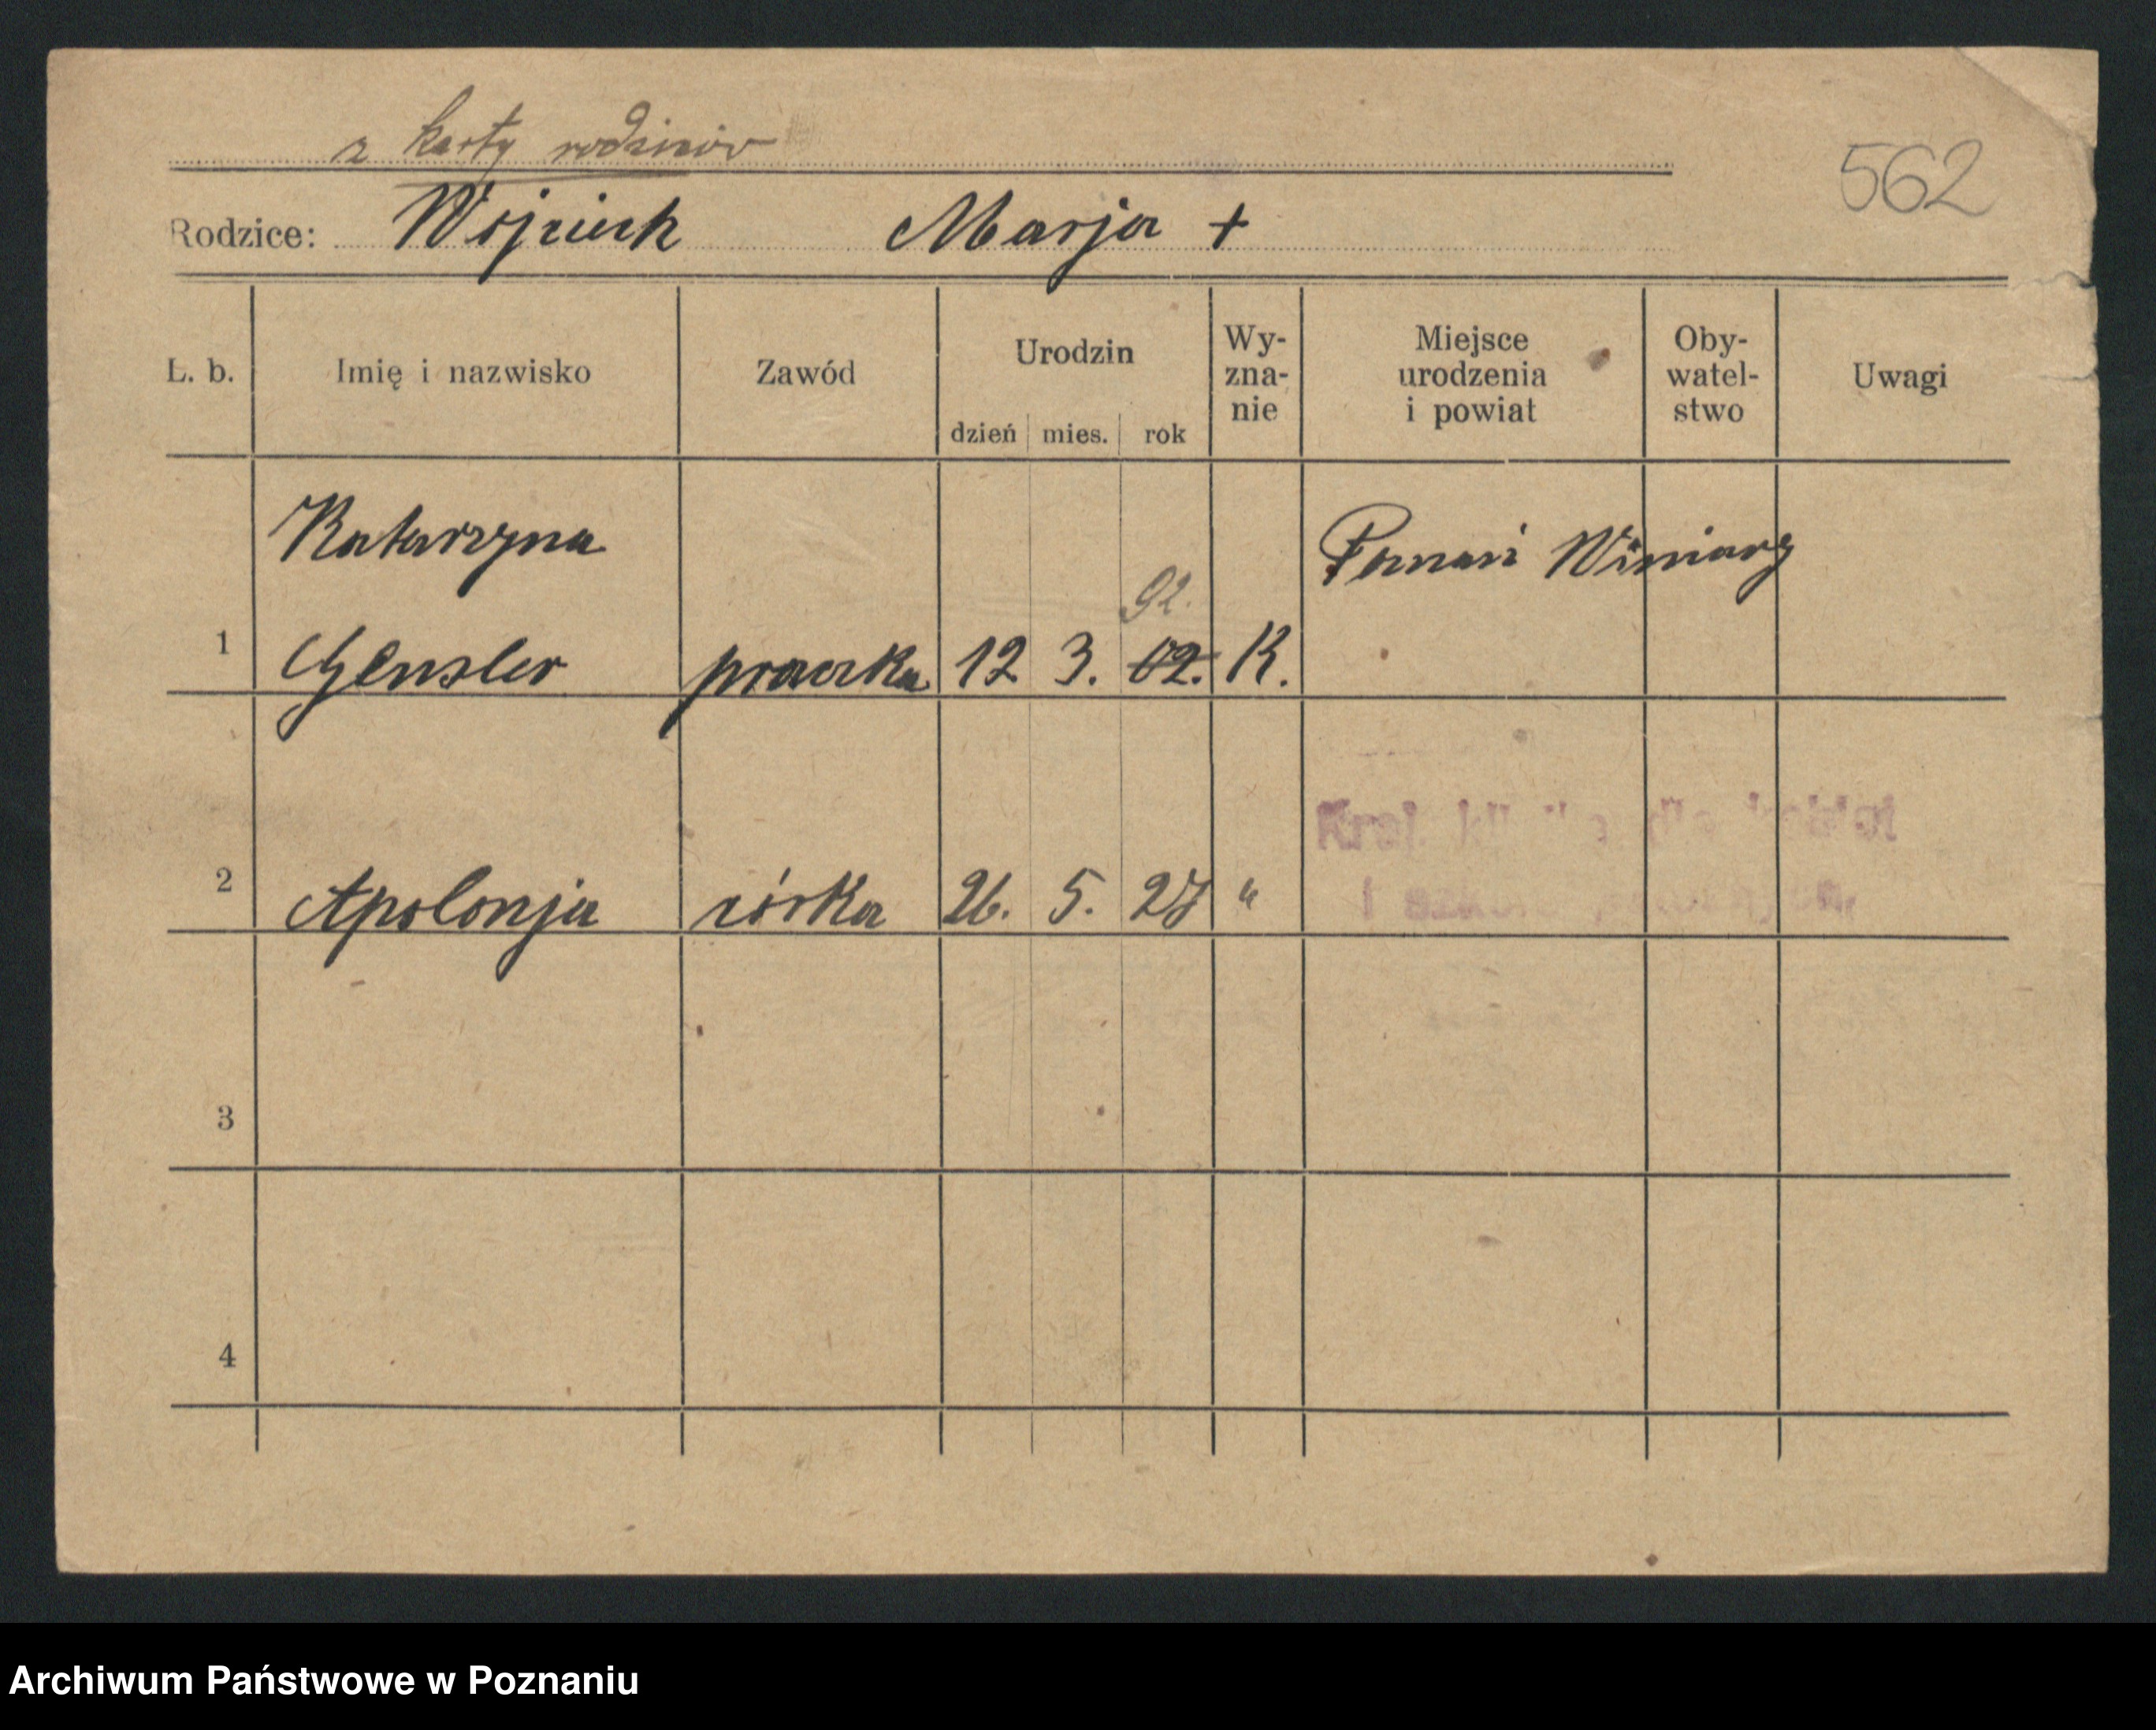 z karty rodziców
562
Rodzice: Wojciech Marja +
L. b. Imię i nazwisko Zawód Urodzin dzień mies. rok Wy-zna-nie Miejsce urodzenia i powiat Oby-watel-stwo Uwagi
Katarzyna Poznań Winiary
92.
1 Gensler praczka 12 3. 02. K.
Kraj.
2 Apolonja córka 26. 5. 27 "
3
4
Archiwum Państwowe w Poznaniu